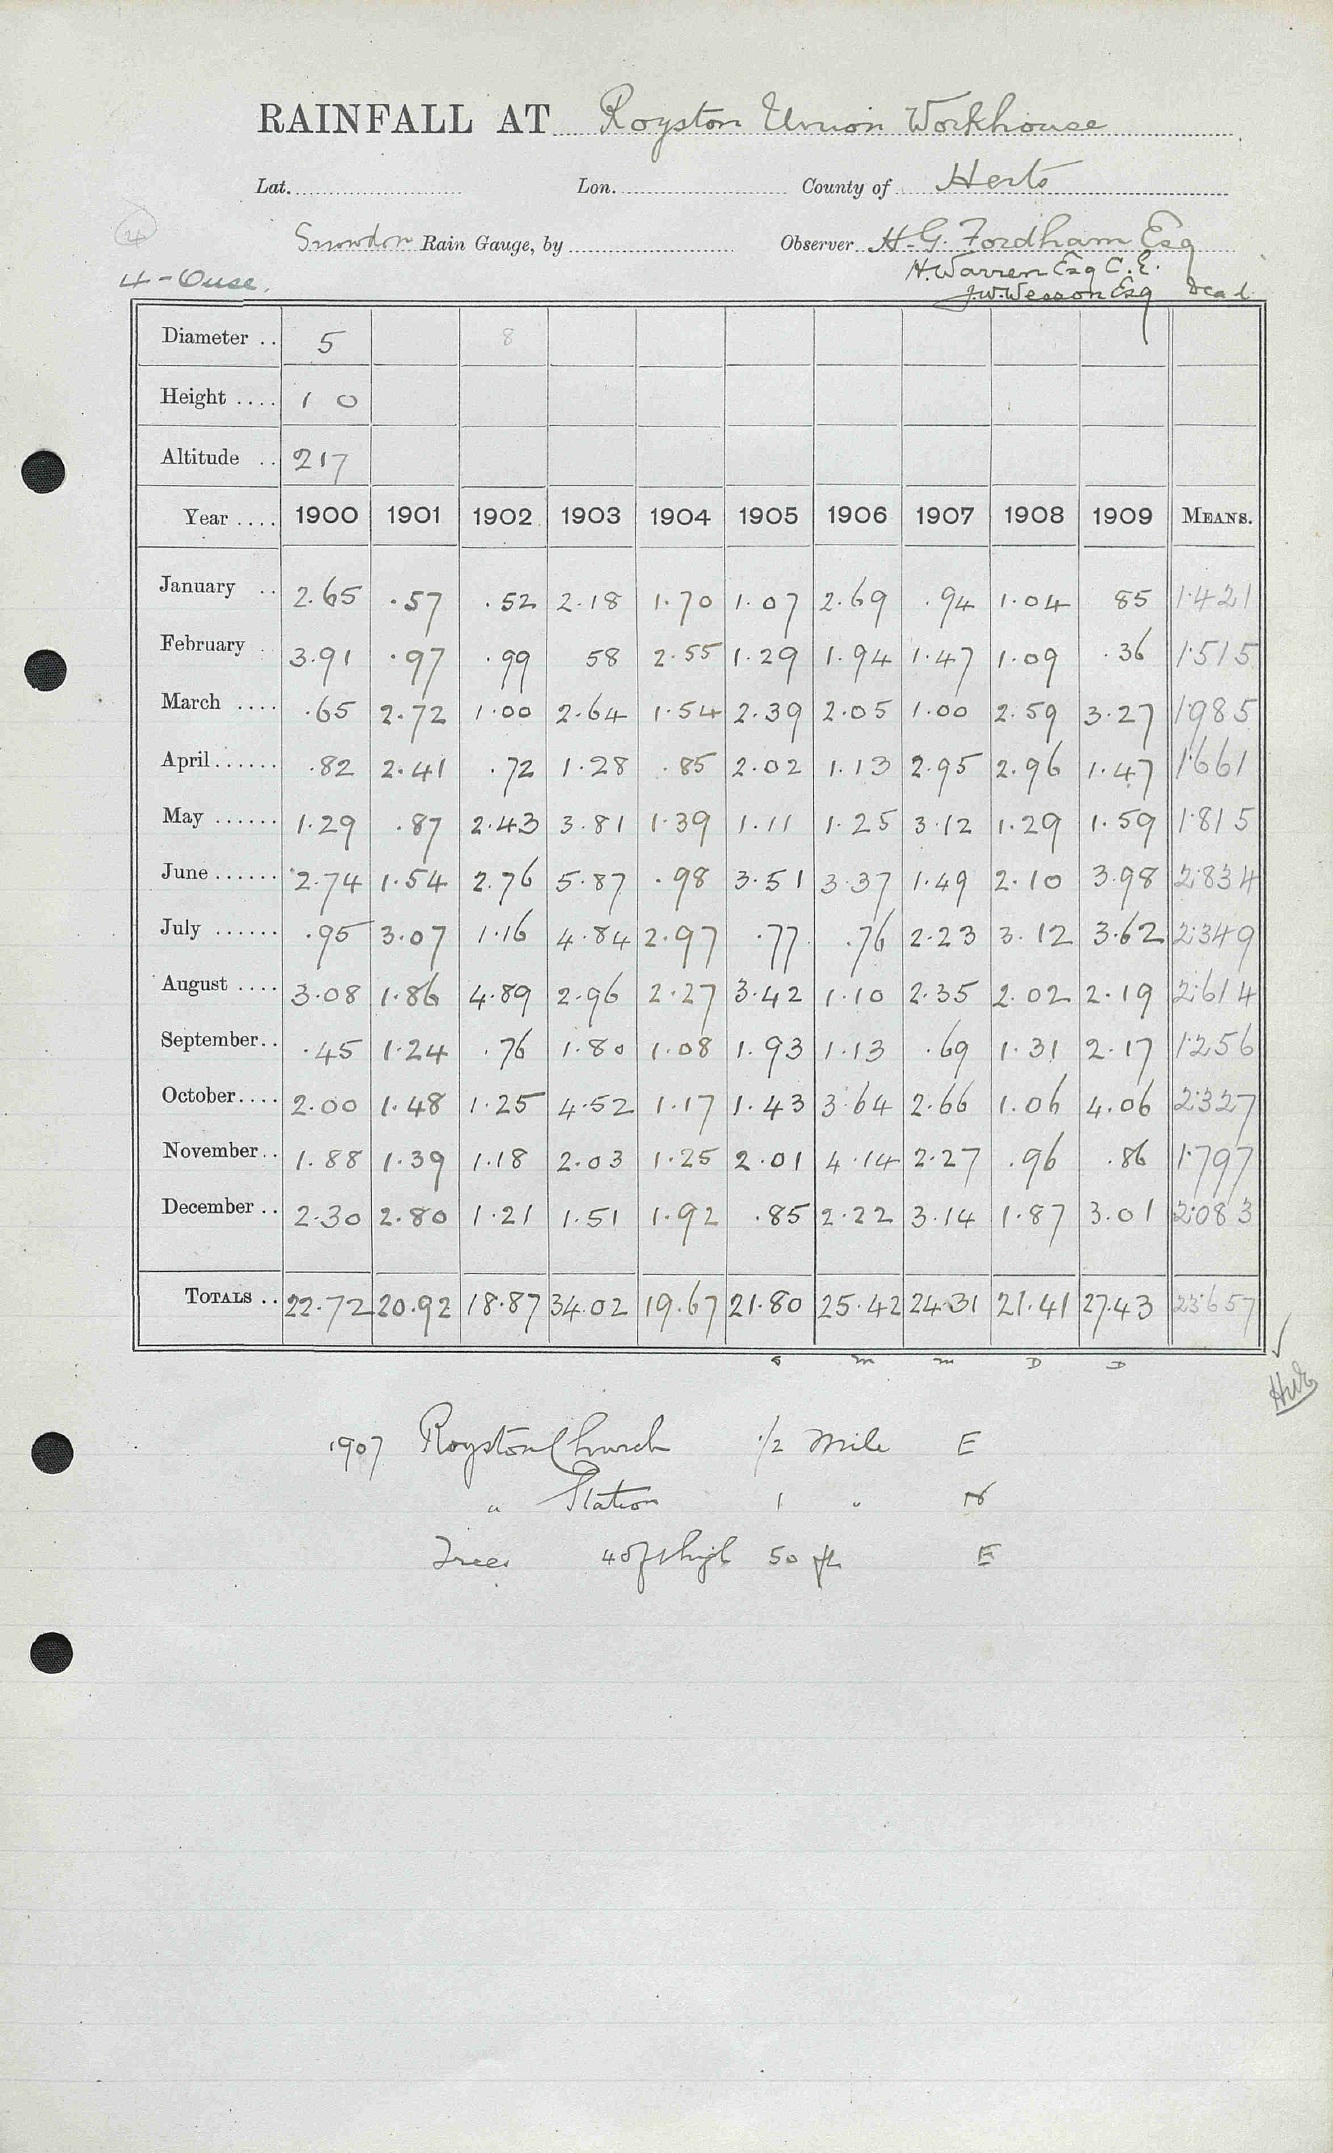 RAINFALL AT Royston Union Workhouse
Lat. Lon. County of Herts
4
Snowdon Rain Gauge, by Observer H. G. Fordham Esq
H. Warren Esq C. E.
4 - Ouse. J. W. Wesson Esq Dead
Diameter .. 5 8
Height .... 1 0
Altitude .. 217
Year .... 1900 1901 1902 1903 1904 1905 1906 1907 1908 1909 MEANS.
January .. 2.65 .57 .52 2.18 1.70 1.07 2.69 .94 1.04 85 1.421
February . 3.91 .97 .99 58 2.55 1.29 1.94 1.47 1.09 .36 1.515
March .... .65 2.72 1.00 2.64 1.54 2.39 2.05 1.00 2.59 3.27 1.985
April ...... .82 2.41 .72 1.28 .85 2.02 1.13 2.95 2.96 1.47 1.661
May ...... 1.29 .87 2.43 3.81 1.39 1.11 1.25 3.12 1.29 1.59 1.815
June ...... 2.74 1.54 2.76 5.87 .98 3.51 3.37 1.49 2.10 3.98 2.834
July ...... .95 3.07 1.16 4.84 2.97 .77 .76 2.23 3.12 3.62 2.349
August .... 3.08 1.86 4.89 2.96 2.27 3.42 1.10 2.35 2.02 2.19 2.614
September .. .45 1.24 .76 1.80 1.08 1.93 1.13 .69 1.31 2.17 1.256
October .... 2.00 1.48 1.25 4.52 1.17 1.43 3.64 2.66 1.06 4.06 2.327
November .. 1.88 1.39 1.18 2.03 1.25 2.01 4.14 2.27 .96 .86 1.797
December .. 2.30 2.80 1.21 1.51 1.92 .85 2.22 3.14 1.87 3.01 2.083
TOTALS .. 22.72 20.92 18.87 34.02 19.67 21.80 25.42 24.31 21.41 27.43 23.657
m m D D
1907 Royston Church 1/2 Mile E
" Station 1 " N
Trees 40 ft high 50 ft E